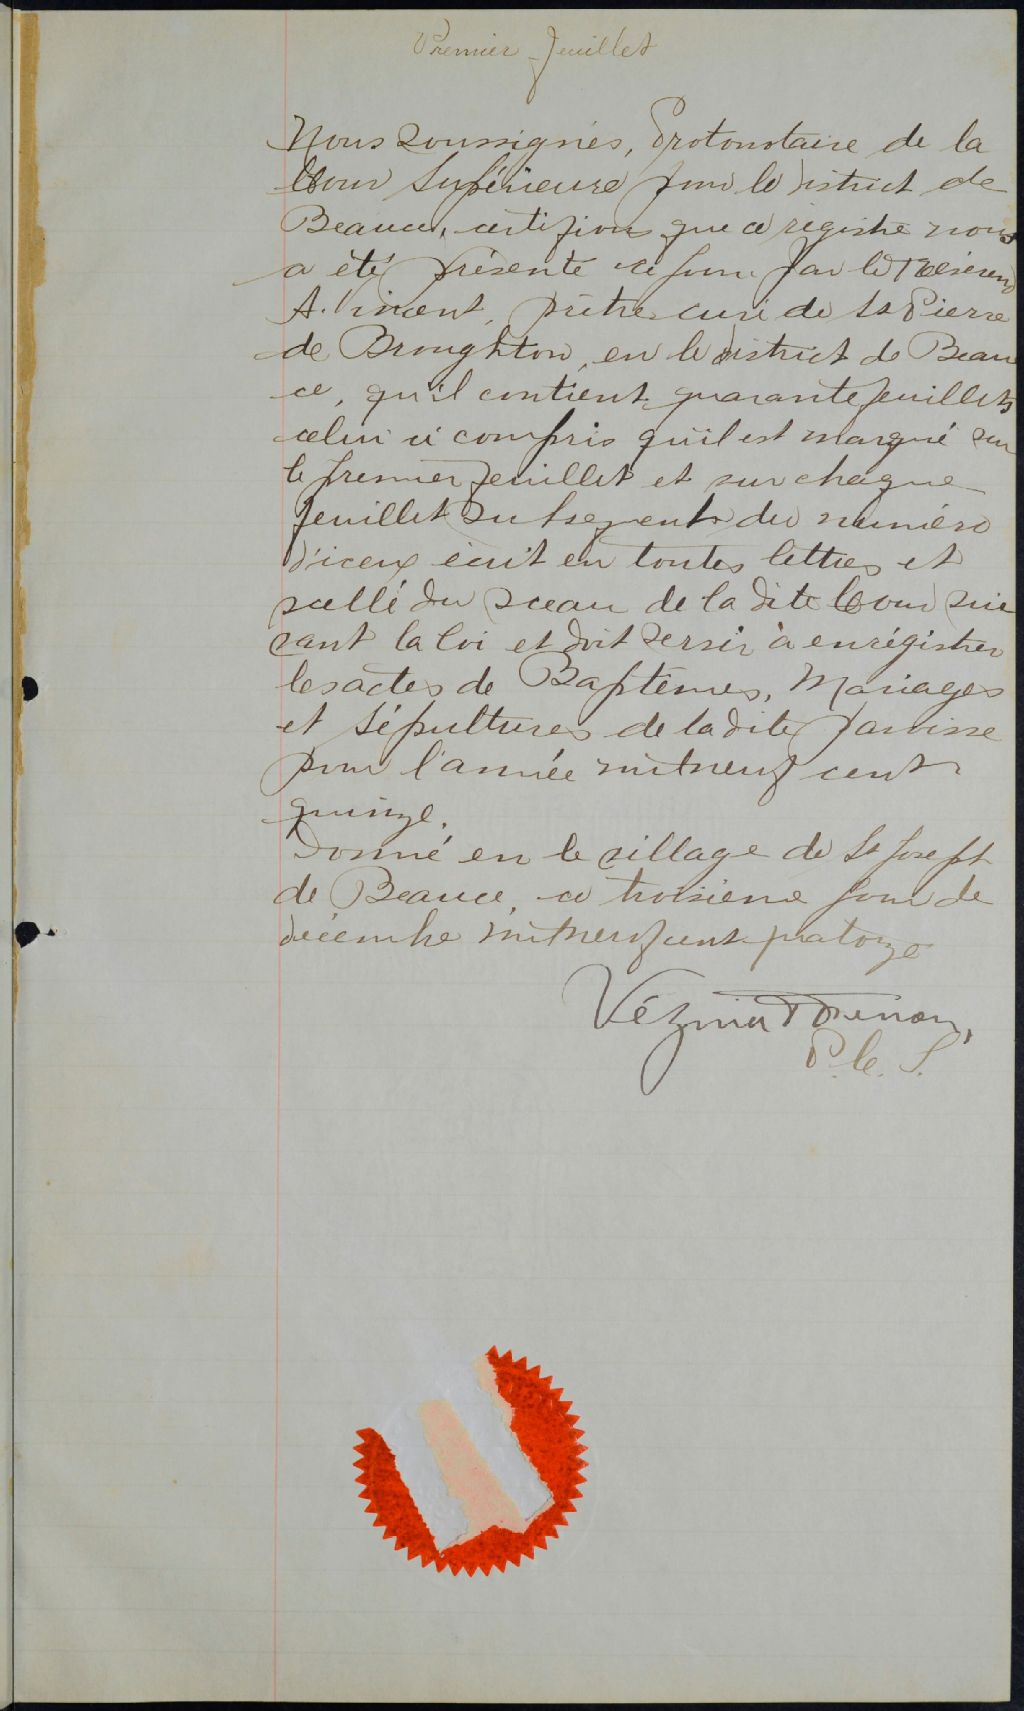 Premier feuillet
Nous soussignés, Protonotaire de la
Cour Supérieure pour le district de
Beauce, certifions que ce registre nous
a été présenté ce jour par le Révérend
A. Vincent, prêtre curé de St Pierre
de Broughton, en le district de Beau
ce, qu'il contient quarante feuillets
celui ci compris qu'il est marqué sur
le premier feuillet et sur chaque
feuillet subsequent du numéro
d'iceux écrit en toutes lettres et
scellé du sceau de la dite Cour sui
vant la loi et doit servir à enrégistrer
les actes de Baptêmes, Mariages
et Sépultures de la dite Paroisse
pour l'année mil neuf cent
quinze.
Donné en le village de St Joseph
de Beauce, ce troisième jour de
décembre mil neuf cent quatorze
Vézina
P. C. S.